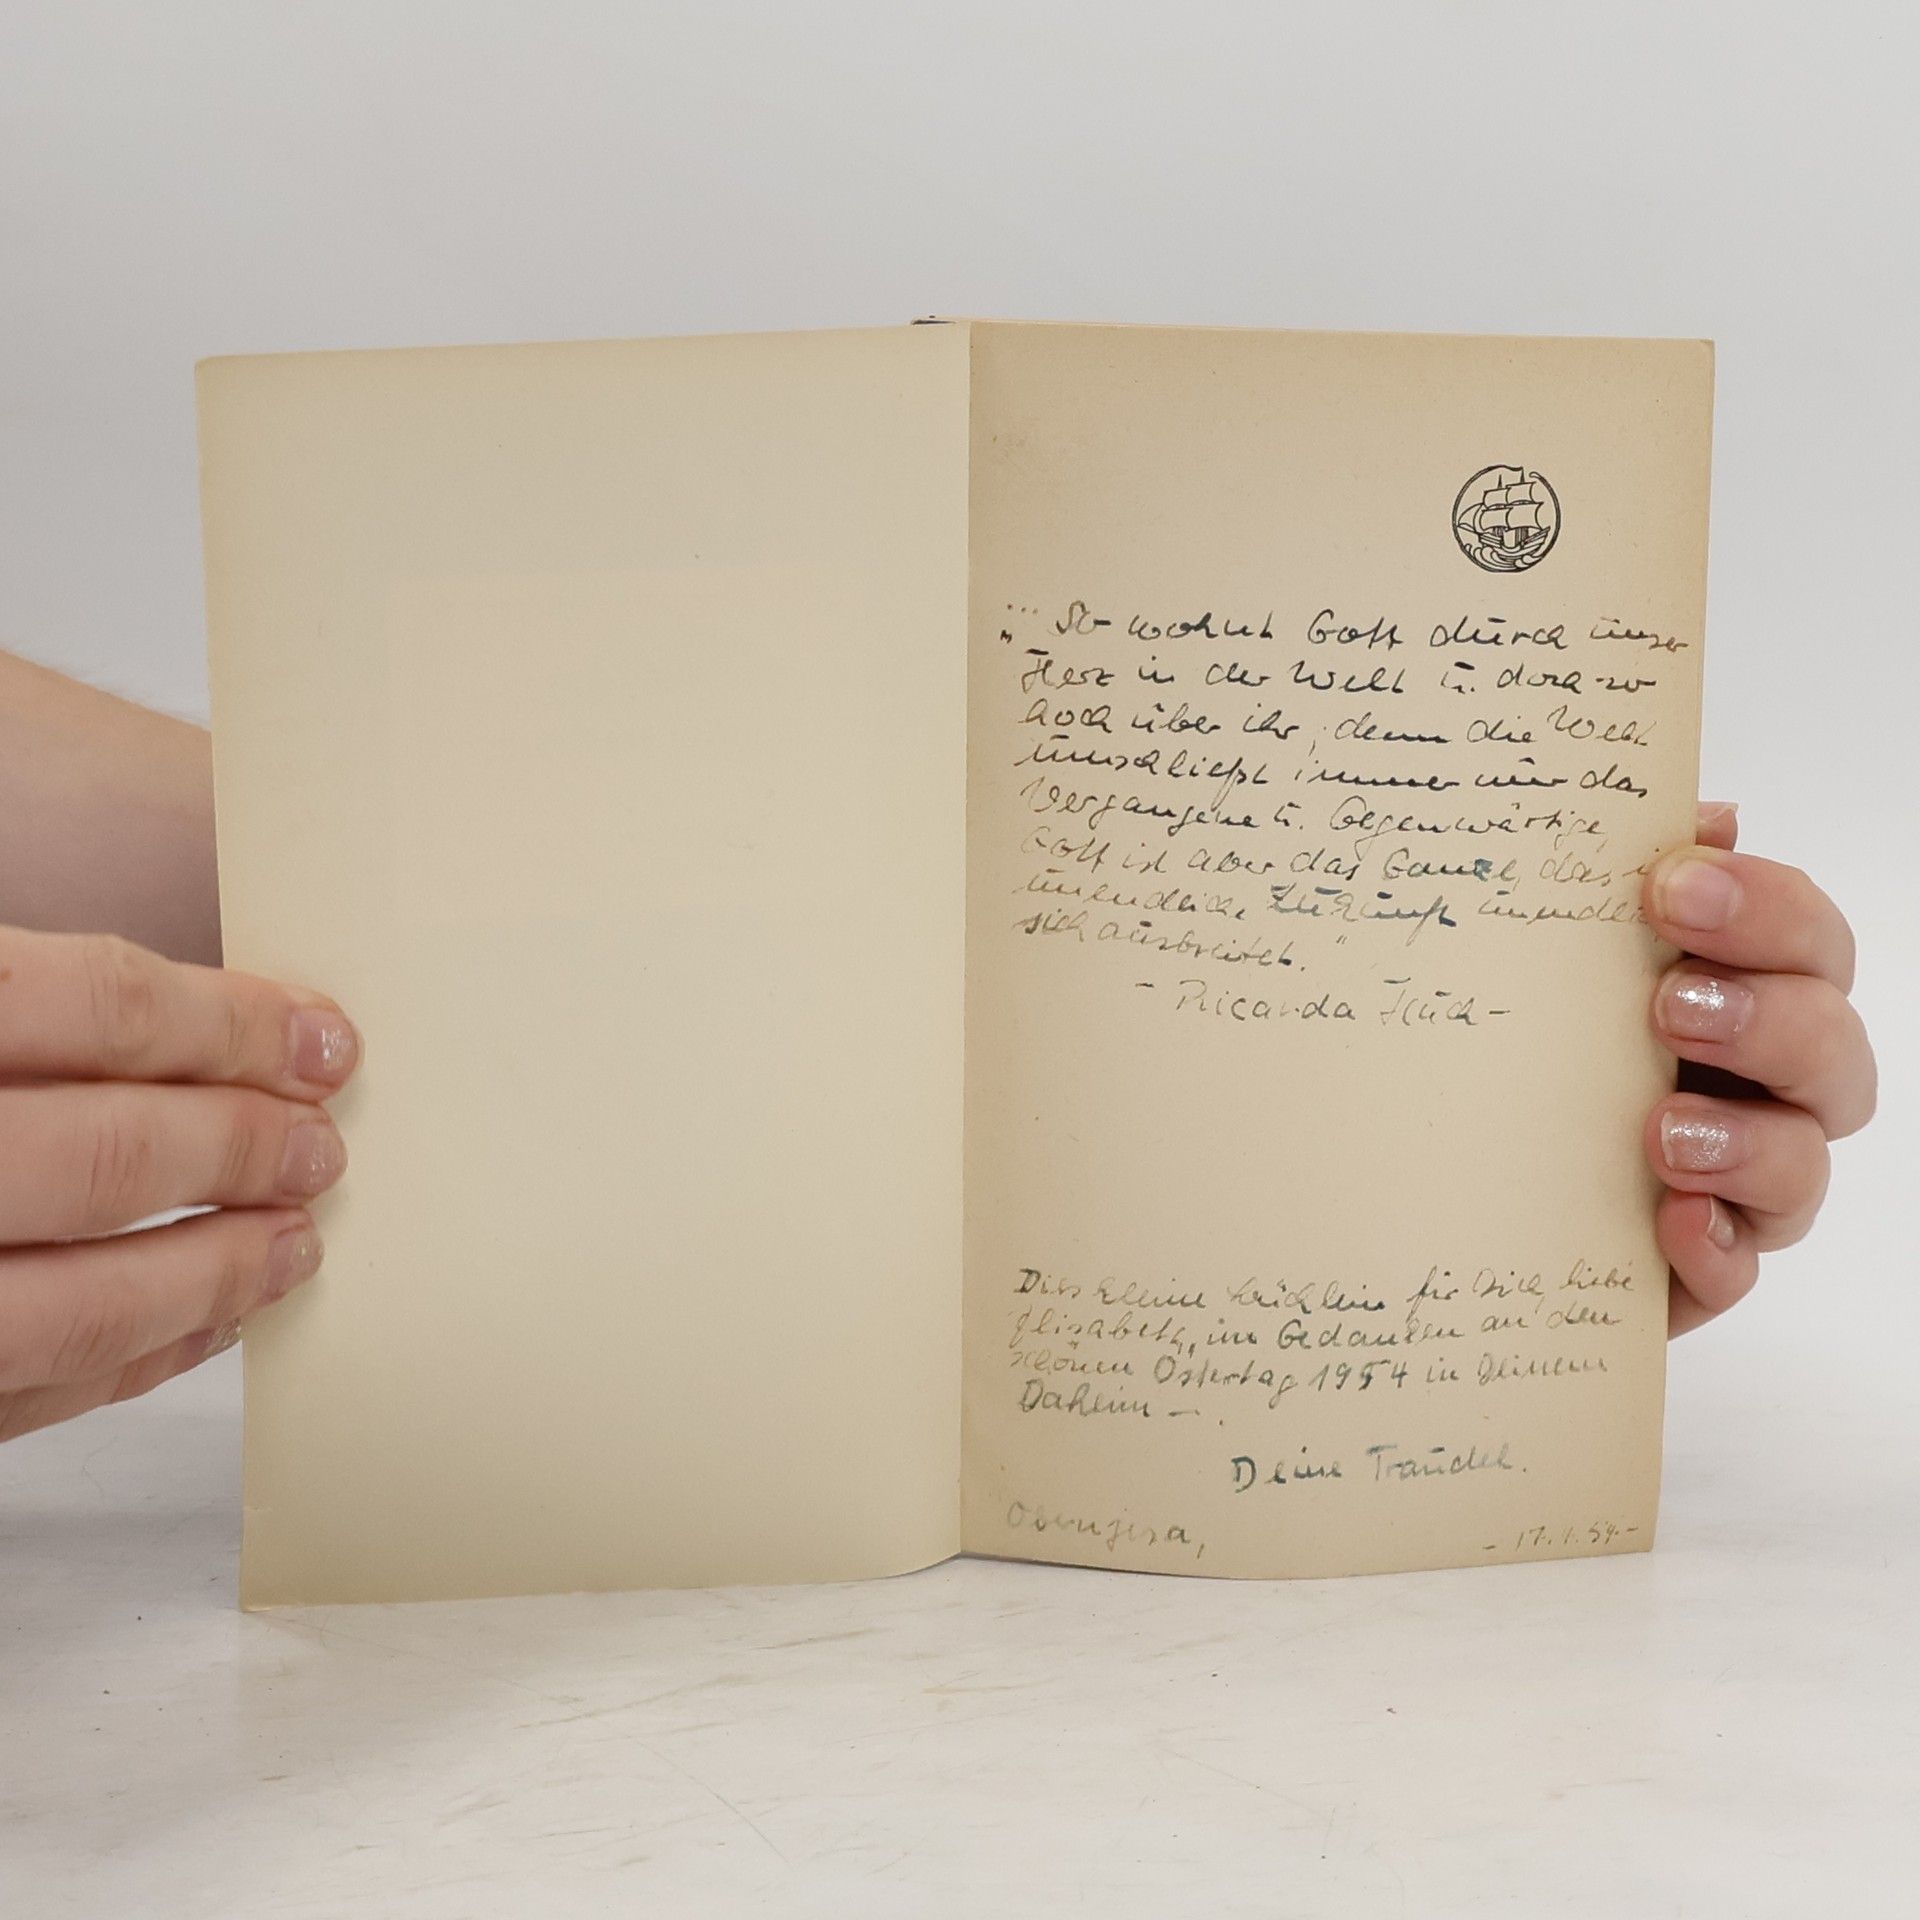 „... So wohnt Gott durch unser
Herz in der Welt u. doch so
hoch über ihr, denn die Welt
umschließt immer nur das
Vergangene u. Gegenwärtige,
Gott ist aber das Ganze, das i
unendliche Zukunft unendlich
sich ausbreitet."
- Ricarda Huch -
Dies kleine Büchlein für Dich, liebe
Elisabeth, im Gedanken an den
schönen Ostertag 1954 in Deinem
Daheim -.
Deine Traudel.
Obernjesa,